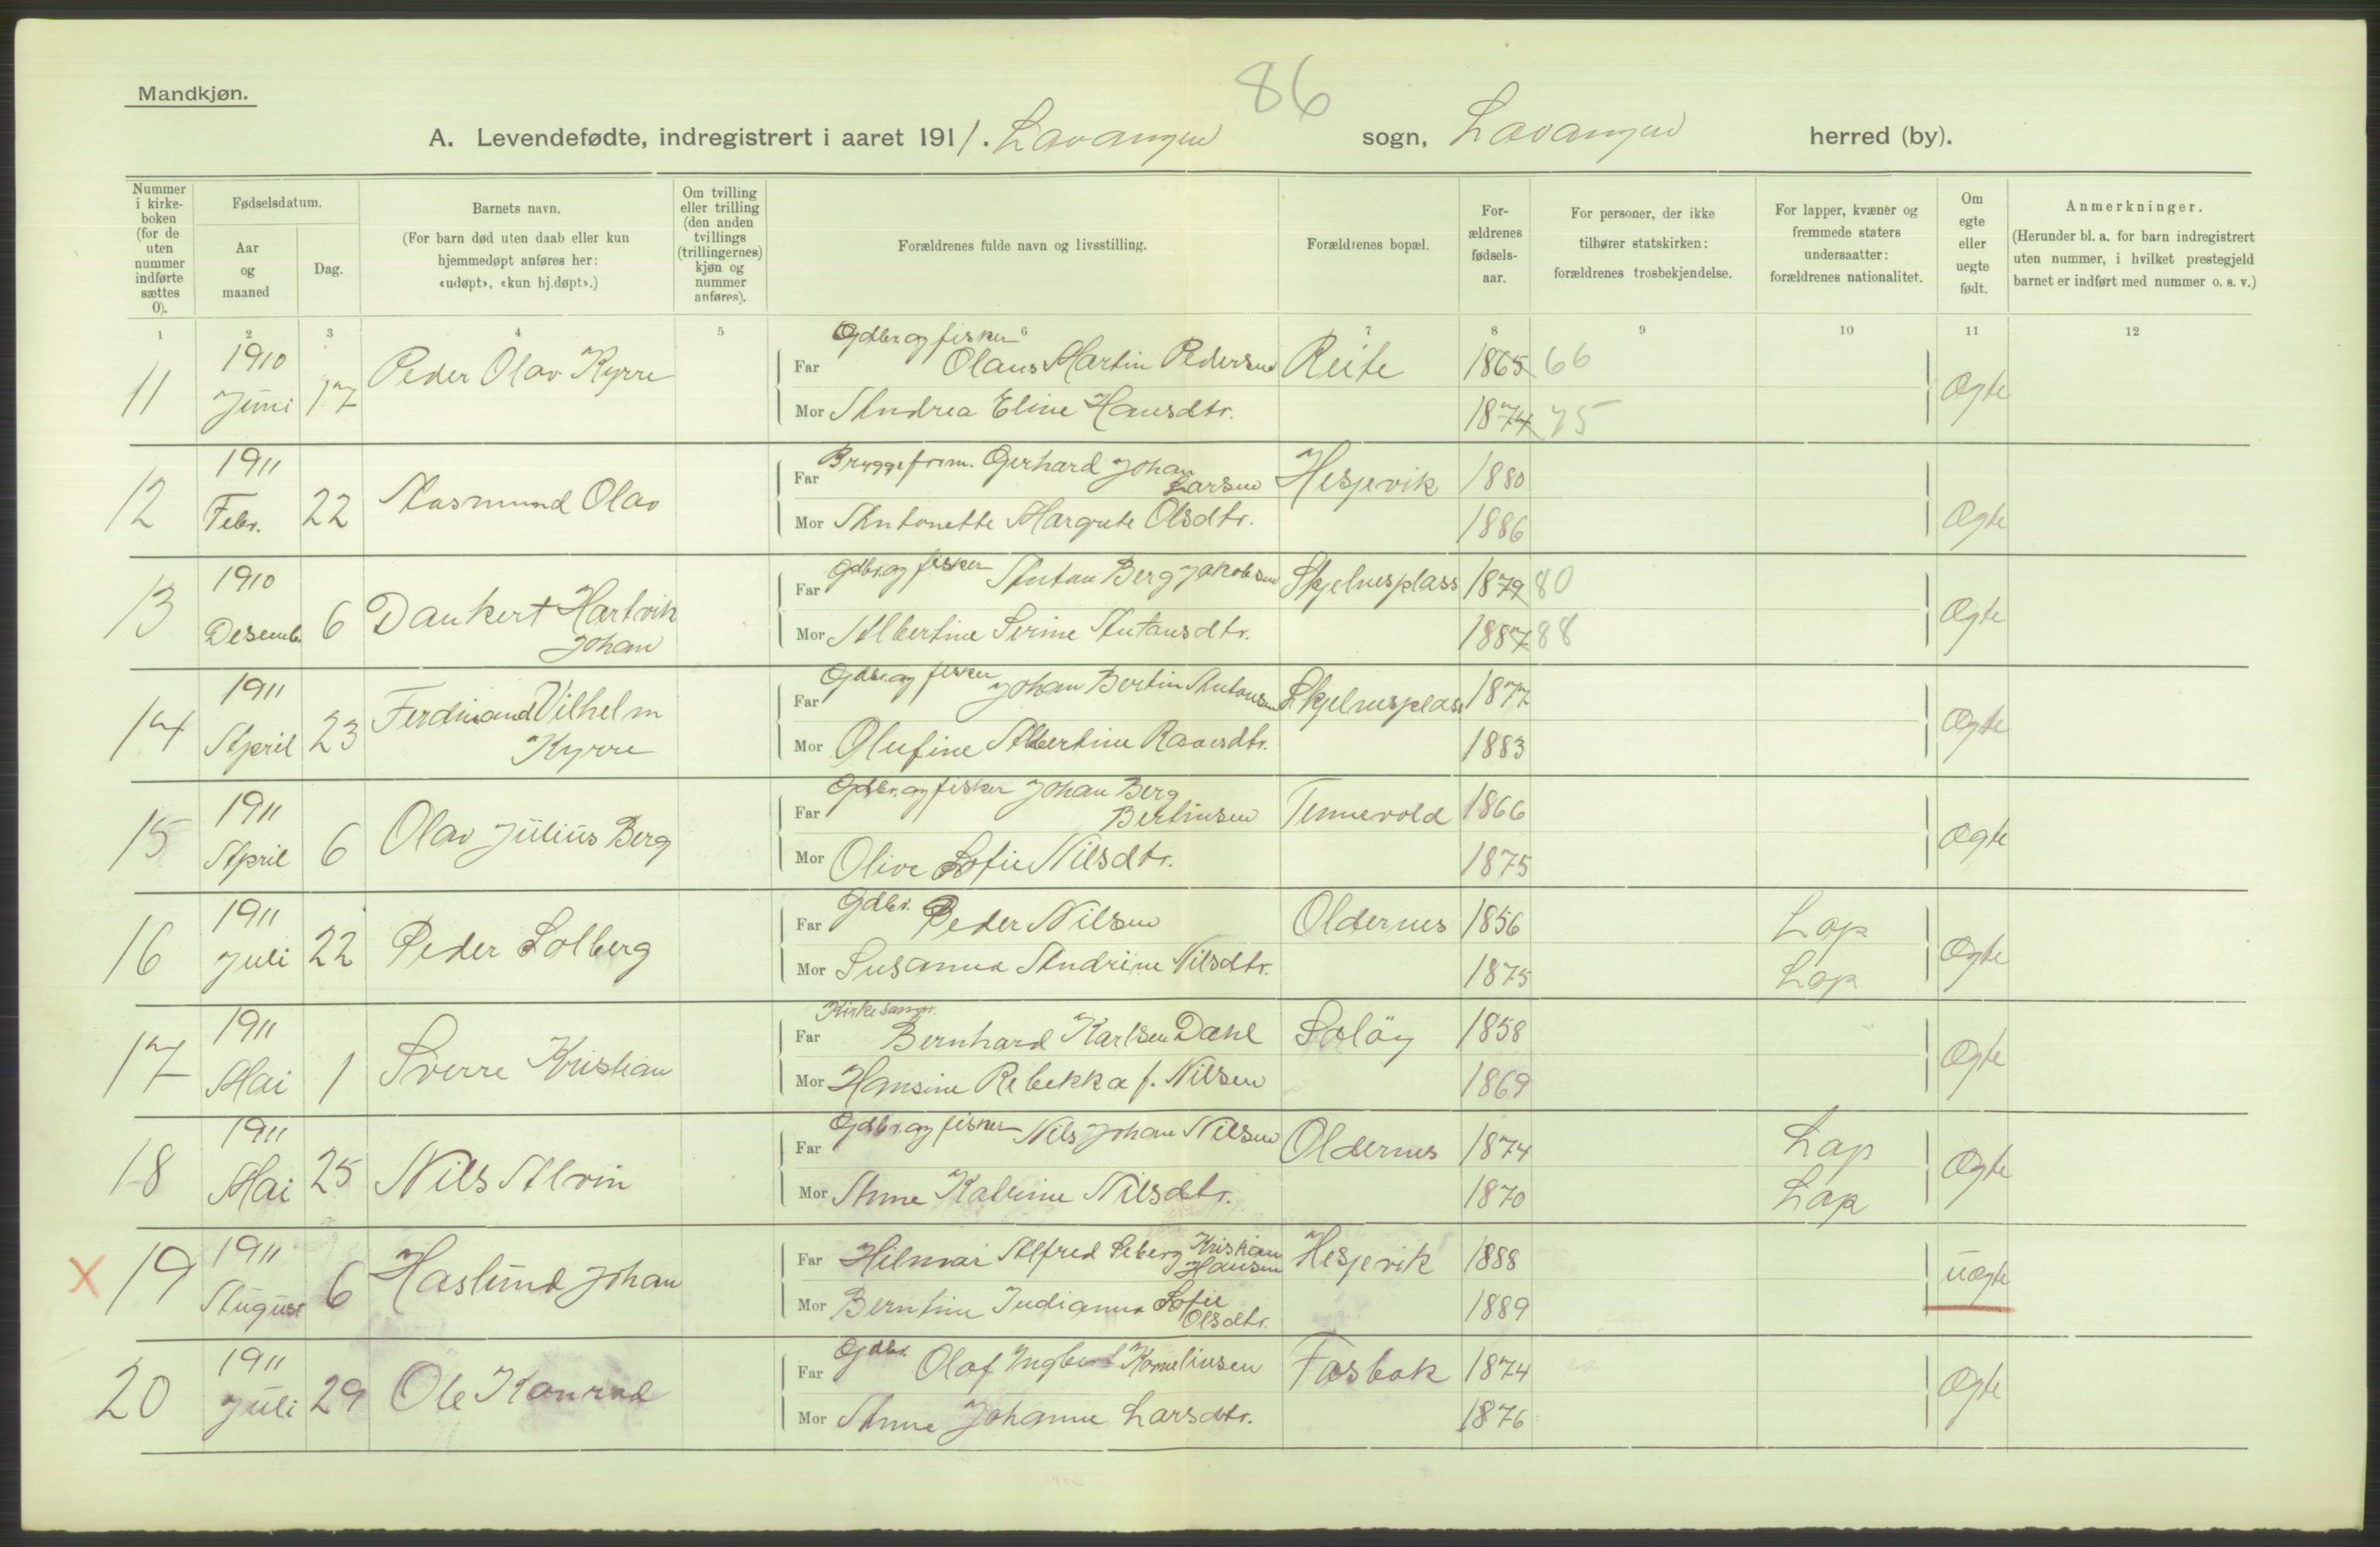 86
Mandkjøn.
A. Levendefødte, indregistrert i aaret 1911. Lavangen sogn, Lavangen herred (by).
Nummer i kirke-boken (for de uten nummer indførte sættes 0).
Fødselsdatum.
Aar og maaned
Dag.
Barnets navn.
(For barn død uten daab eller kun hjemmedøpt anføres her: «udøpt», «kun hj.døpt».)
Om tvilling eller trilling (den anden tvillings (trillingernes) kjøn og nummer anføres).
Forældrenes fulde navn og livsstilling.
Forældrenes bopæl.
For-ældrenes fødsels-aar.
For personer, der ikke tilhører statskirken: forældrenes trosbekjendelse.
For lapper, kvæner og fremmede staters undersaatter: forældrenes nationalitet.
Om egte eller uegte født.
Anmerkninger.
(Herunder bl. a. for barn indregistrert uten nummer, i hvilket prestegjeld barnet er indført med nummer o. s. v.)
1 2 3 4 5 6 7 8 9 10 11 12
11 1910 Juni 17 Peder Olav Kyrre
Far Gdbr. og fisker Olaus Martin Pedersen Reite 1865 66
Mor Andrea Eline Hansdtr. 1874 75
Ægte
12 1911 Febr. 22 Aasmund Olav
Far Bryggeform. Gerhard Johan Larsen Hesjevik 1880
Mor Antonette Margrete Olsdtr. 1886
Ægte
13 1910 Desemb. 6 Dankert Hartvik Johan
Far Gdbr. og fisker Anton Berg Jakobsen Skjelnesplass 1879 80
Mor Albertine Serine Antonsdtr. 1887 88
Ægte
14 1911 April 23 Ferdinand Vilhelm Kyrre
Far Gdbr. og fisker Johan Bertin Antonsen Skjelnesplass 1877
Mor Olufine Albertine 1883
Ægte
15 1911 April 6 Olav Julius Berg
Far Gdbr. og fisker Johan Berg Bertinsen Tennevold 1866
Mor Olive Sofie Nilsdtr. 1875
Ægte
16 1911 Juli 22 Peder Solberg
Far Gdbr. Peder Nilsen Oldernes 1856 Lap
Mor Susanna Andrine Nilsdtr. 1875 Lap
Ægte
17 1911 Mai 1 Sverre Kristian
Far Kirkesanger Bernhard Karlsen Dahl Soløy 1858
Mor Hansine Rebekka f. Nilsen 1869
Ægte
18 1911 Mai 25 Nils Alvin
Far Gdbr. og fisker Nils Johan Nilsen Oldernes 1874 Lap
Mor Anne Katrine Nilsdtr. 1870 Lap
Ægte
X 19 1911 August 6 Haslund Johan
Far Hilmar Alfred Seberg Kristian Hansen Hesjevik 1888
Mor Berntine Indianna Sofie Olsdtr. 1889
uægte
20 1911 Juli 29 Ole Konrad
Far Gdbr. Olaf Ingbert Korneliusen Fosbak 1874
Mor Anne Johanne Larsdtr. 1876
Ægte